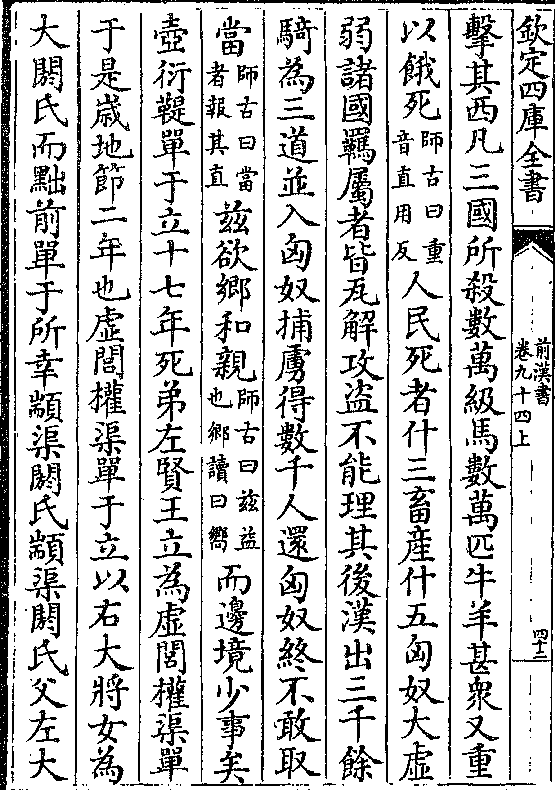 欽定四庫全書
前漢書
卷九十四上
四十二
擊其西凡三國所殺數萬級馬數萬匹牛羊甚衆又重
以餓死師古曰重音直用反人民死者什三畜産什五匈奴大虛
弱諸國羈屬者皆瓦解攻盜不能理其後漢出三千餘
騎為三道並入匈奴捕虜得數千人還匈奴終不敢取
當師古曰當者報其直兹欲鄉和親師古曰兹益也鄉讀曰嚮而邊境少事矣
壺衍鞮單于立十七年死弟左賢王立為虛閭權渠單
于是歲地節二年也虛閭權渠單于立以右大將女為
大閼氏而黜前單于所幸顓渠閼氏顓渠閼氏父左大